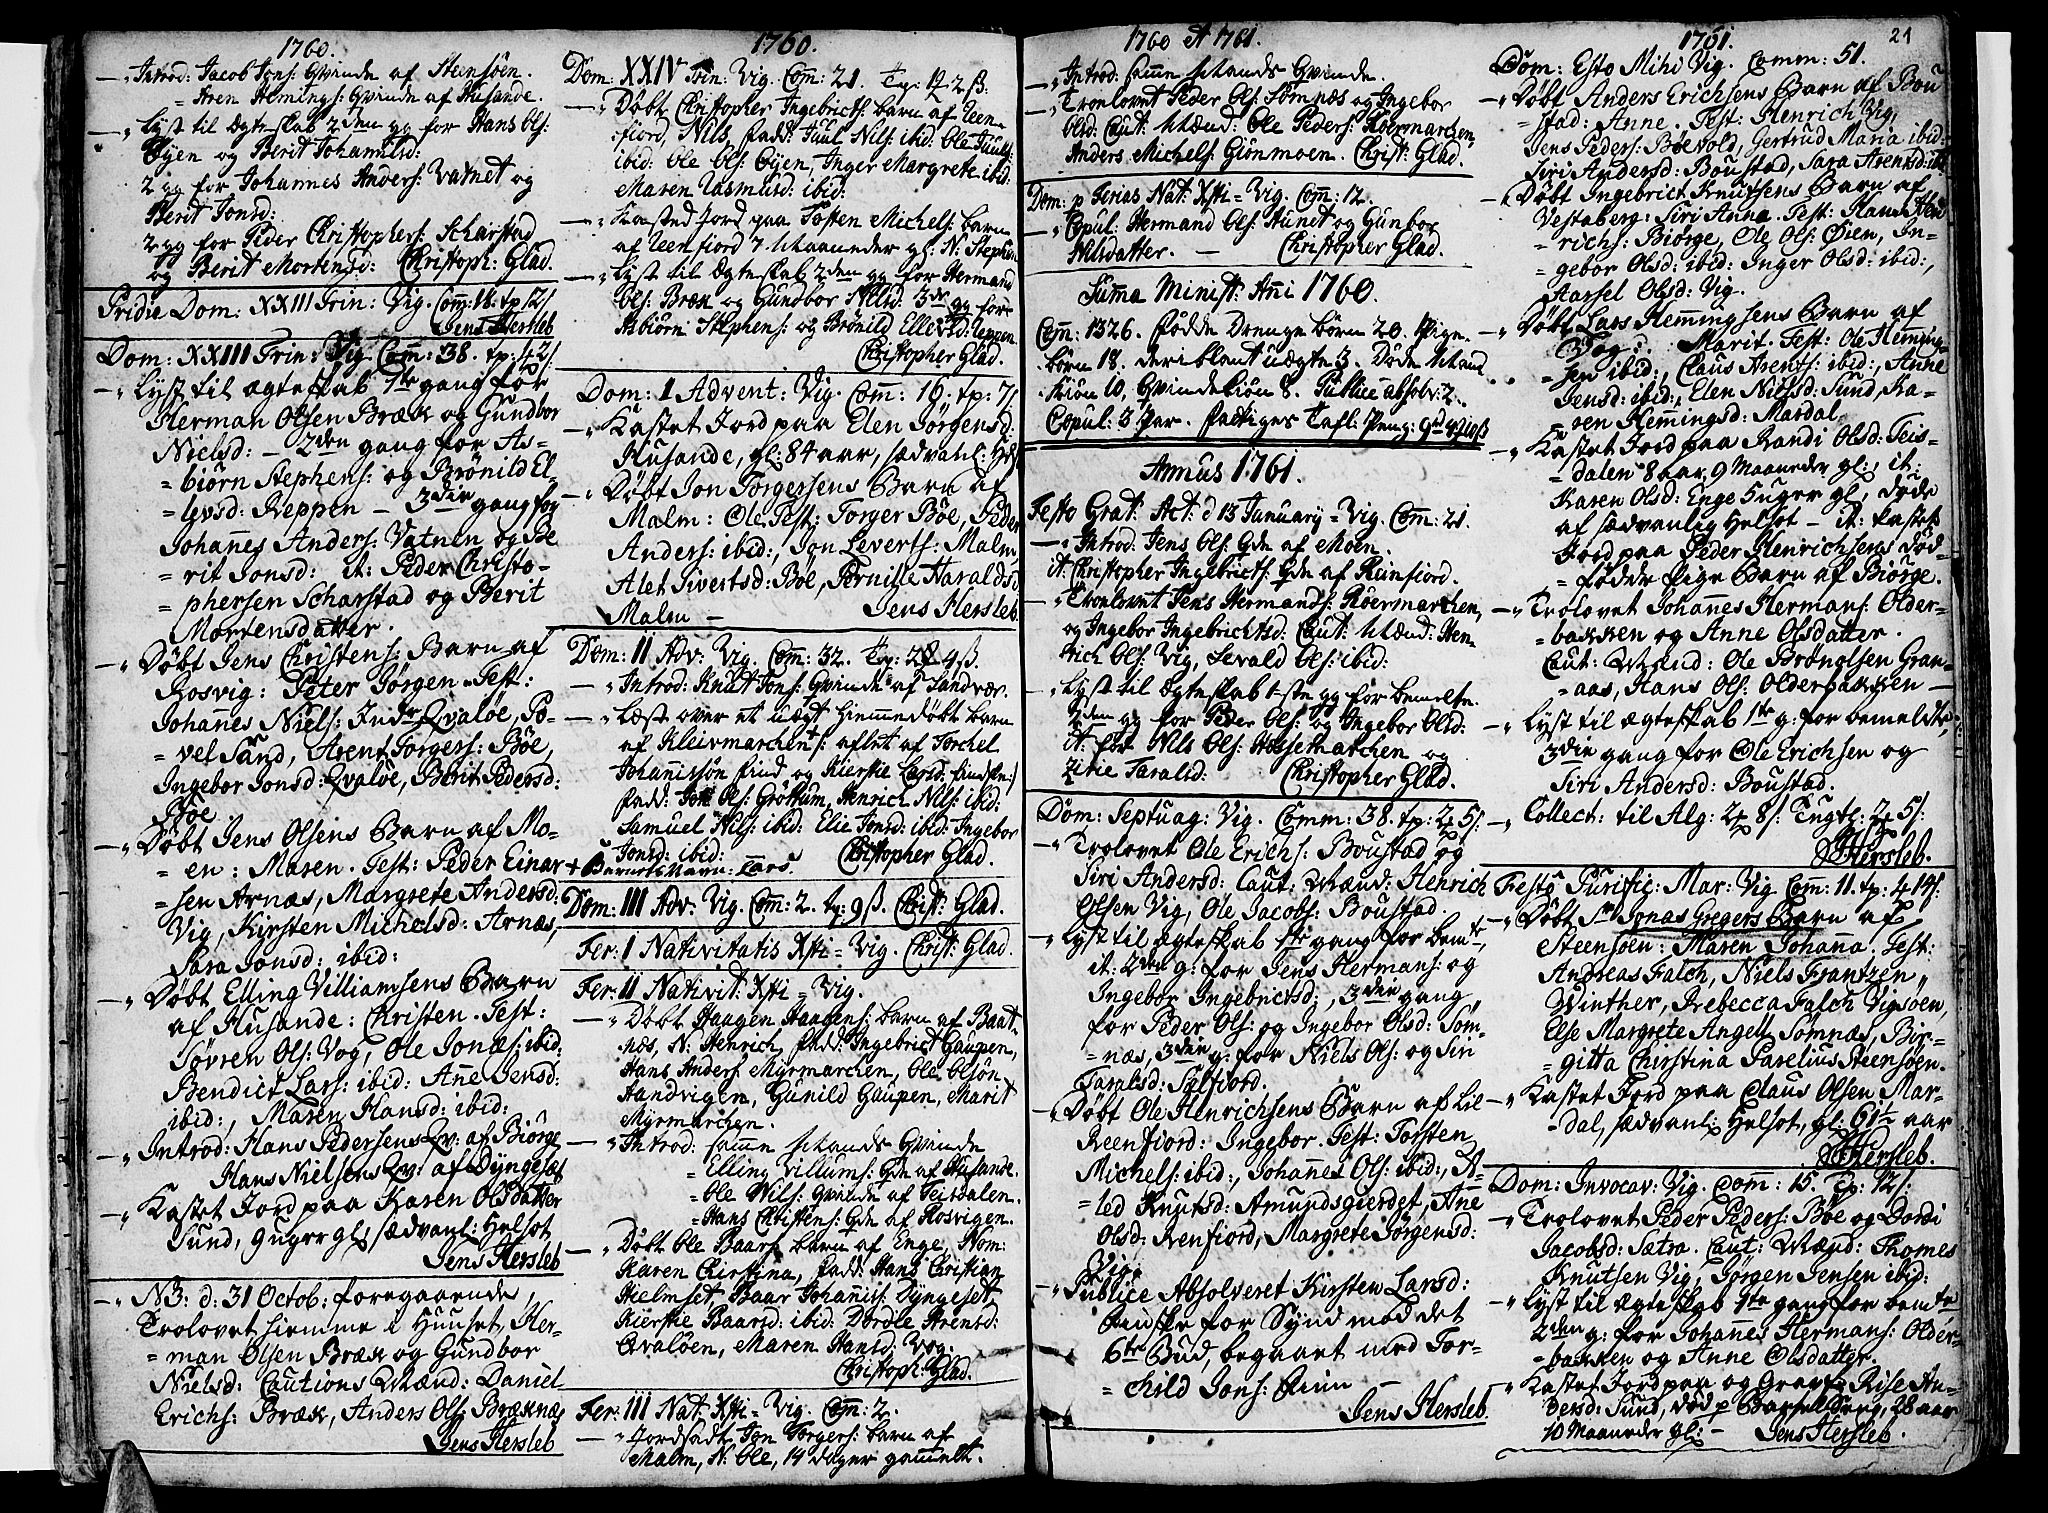 1760.
Introd: Jacob Jons: Qvinde af Steensöen.
= Aren Hemings: Qvinde af Husande.
Lyst til Ægteskab 2den gg for Hans Ols:
Øyen og Berit Johannisd:
2 gg for Johannes Anders: Vatnet og
Berit Jonsd:
2 gg for Peder Christophers: Scharstad
og Berit Mortensd: Christoph: Glad.
Pridie Dom: XXIII Trin: Vig. Com: 11. tp: 12/
Jens Hersleb
Dom: XXIII Trin: Vig. Com: 38. tp: 42/.
Lyst til ægteskab 1te gang for
Herman Olsen Bræk og Gundbor
Nielsd: – 2den gang for As-
= biörn Stephens: og Brönild El-
= levsd: Reppen – 3die gang for
Johannes Anders: Vatnen og Be
= rit Jonsd: it: Peder Christo-
= phersen Scharstad og Berit
Mortensdatter.
Döbt Jens Christens: Barn af
Rosvig: Peter Jörgen. Test:
Johannes Niels: Indre Qvalöe, Po-
= vel Sund, Arent Torgers: Böe,
Ingebor Jonsd: Qvalöe, Berit Pedersd:
Böe.
Döbt Jens Olsens Barn af Mo-
= en: Maren. Test: Peder Einar
= sen Arnæs, Margrete Andersd:
Vig, Kirsten Michelsd: Arnæs,
Sara Jonsd: ibid:
Döbt Elling Villiamsens Barn
af Husande: Christen. Test:
Sövren Ols: Vog, Ole Jonæs: ibid:
Bendict Lars: ibid: Ane Jensd:
ibid:, Maren Hansd: ibid:
Introd: Hans Pedersens Qv: af Biörge
Hans Nielsens Qv: af Dyngeset
Kastet Jord paa Karen Olsdatter
Sund, 9 uger gl: sædvanl: Helsot
Jens Hersleb
NB: d: 31 Octob: foregaaende,
Trolovet hiemme i Huuset, Her-
= man Olsen Bræk og Gundbor
Nielsd: Cautions Mænd: Daniel
Erichs: Bræk, Anders Ols: Bræknæs
Jens Hersleb
1760.
Dom: XXIV Trin: Vig. Com: 21. Tp: 2 ß.
Döbt Christopher Ingebricts: barn af Reen-
fiord, Nils, fadd: Juul Nils: ibid: Ole Juuls:
ibid: Ole Ols: Øyen, Inger Margrete ibid:
Maren Rasmusd: ibid:
Kasted Jord paa Tosten Michels: barn
af Reenfiord 7 Maaneder gl: N: Stephen
Lyst til Ægteskab 2den gg for Hermand
Ols: Bræk og Gundbor Nilsd: 3de gg for
Asbiörn Stephens: og Brönild Ellevsd: Reppen
Christopher Glad.
Dom: 1 Advent: Vig. Com: 16. tp: 7/
Kastet Jord paa Elen Jörgensd:
Husande, gl: 84 aar, sædvanl: Hels
Döbt Jon Torgersens Barn af
Malm: Ole. Test: Torger Böe, Peder
Anders: ibid:, Jon Leverts: Malm
Alet Sivertsd: Böe, Pernille Haraldsd
Malm – Jens Hersleb
Dom: II Adv: Vig. Com: 32. Tp: 2 4 ß.
Introd: Knut Jons: Qvinde af Sandvær.
Læst over et uægt hiemmedöbt barn
af Kleivmarchen + /: aflet af Torchel
Johannissön find og Kierstie Larsd: find
fadd: Jon Ols: Gröttum, Henrich Nils: ibid:
Samuel Nils: ibid: Elie Jonsd: ibid: Ingebor
Jonsd: ibid: Christopher Glad.
+ Barnets Navn: Lars.
Dom: III Adv: Vig. Com: 2. tp: 9 ß. Christ: Glad.
Fer: I Nativitatis Xsti = Vig. Christ: Glad.
Fer: II Nativit: Xsti = Vig.
Döbt Haagen Haagens: barn af Baat-
næs, N: Henrich, fadd: Ingebrict Gaupen,
Hans Anders: Myrmarchen, Ole Olsön
Sandvigen, Gunild Gaupen, Marit
Myrmarchen.
Introd: samme Mands Qvinde
= Elling Villums: Qde af Husande.
= Ole Nils: Qvinde af Teisdalen.
= Hans Christens: Qde af Rosvigen.
Döbt Ole Baars: barn af Enge, Nom:
Karen Christina, fadd: Hans Christian
Hielmset, Baar Johanis: Dyngeset,
Kierstie Baarsd: ibid: Dordie Arensd:
Qvalöen, Maren Hansd: Vog.
Christoph: Glad.
Fer: III Nat: Xsti = Vig. Com: 2.
Jordsadt Jon Torgers: barn af
Malm, N: Ole, 14 dager gammelt.
1760 et 1761.
Introd: samme Mands Qvinde.
Troelovet Peder Ols: Sömnæs og Ingebor
Olsd: Caut: Mænd: Ole Peders: Röermarchen
Anders Michels: Grönmoen. Christ: Glad.
Dom: p Ferias Nat: Xsti = Vig. Com: 12.
Copul: Hermand Ols: Hunet og Gunbor
Nilsdatter. – Christopher Glad.
Summa Minist: Ani 1760.
Com: 1326. födde Drenge börn 20. Pige-
börn 18. deriblant uægte 3. Döde Mand
Kiön 10, Qvindekiön 8. Publice absolv: 2.
Copul: 3 Par. fattiges Tafl: Peng:
Annus 1761.
Festo Grat: Act: d 13 January = Vig. Com: 21.
Introd: Jens Ols: Qde af Moen.
it: Christopher Ingebricts: Qde af Reenfiord.
Troelovet Jens Hermands: Röermarchen,
og Ingebor Ingebrichtsd: Caut: Mænd: Hen-
rich Ols: Vig, Sevald Ols: ibid:
Lyst til Ægteskab 1ste gg for bemelte.
2den gg for Peder Ols: og Ingebor Olsd:
it: for Nils Ols: Hossetmarchen og
Zirie Taralsd: Christopher Glad.
Dom: Septuag: Vig. Comm: 38. tp: 5/.
Trolovet Ole Erichs: Boustad og
Siri Andersd: Caut: Mænd: Henrich
Olsen Vig, Ole Jacobs: Boustad.
Lyst til ægteskab 1te gang for bemte,
it: 2den g: for Jens Hermans: og
Ingebor Ingebrictsd:, 3die gang,
for Peder Ols: og Ingebor Olsd: Söm-
= næs, 3die g: for Niels Ols: og Siri
Taralsd: Sylfiord.
Döbt Ole Henrichsens Barn af Lil
Reenfiord: Ingebor. Test: Torsten
Michels: ibid:, Johannes Ols: ibid:, A-
= led Knutsd: Amundsgierdet, Ane
Olsd: Renfiord, Margrete Jörgensd:
Vig.
Publice Absolveret Kirsten Larsd:
Finske for Synd mod det
6te Bud, begaaet med Tor-
= child Jons: Finn –
Jens Hersleb
1761. 21
Dom: Esto Mihi Vig. Comm: 51.
Döbt Anders Erichsens Barn af Bou
= stad: Anne. Test: Henrich Vig,
Jens Peders: Böevold, Gertrud Maria ibid:
Siri Andersd: Boustad, Sara Arentsd: ibd
Döbt Ingebrict Knutsens Barn af
Vestaberg: Siri Anna. Test: Hans Hen
= richs: Biörge, Ole Ols: Øien, In-
gebor Olsd: ibid: Inger Olsd: ibid:,
Aassel Olsd: Vig.
Döbt Lars Hemmingsens Barn af
Vog: Marit. Test: Ole Heming-
= sen ibid:, Claus Arents: ibid:, Anne
Jensd: ibid:, Elen Nielsd: Sund, Ka-
= ren Hemmingsd: Mardal.
Kastet Jord paa Randi Olsd: Teis-
= dalen 8 aar, 9 Maaneder gl:, it:
Karen Olsd: Enge 5 uger gl:, döde
af sædvanlig Helsot – it: kastet
Jord paa Peder Henrichsens död-
= födde Pige Barn af Biörge.
Trolovet Johannes Hermans: Older-
= bakken og Anne Olsdatter.
Caut: Mænd: Ole Bröngelsen Gran-
= aas, Hans Ols: Olderbakken –
Lyst til ægteskab 1te g: for bemeldte,
3die gang for Ole Erichsen og
Siri Andersd: Boustad.
Collect: til Alg: 8/. Tugtl: 5/.
JHersleb.
Festo Purific: Mar: Vig. Com: 11. tp: 14/.
Döbt Sr Jonas Gregers Barn af
Steensöen: Maren Johanna. Test:
Andreas Falch, Niels Frantzen
Winther, Rebecca Falch Vigsöen,
Else Margrete Angell Somnæs, Bir-
= gitta Christina Parelius Steensöen.
Kastet Jord paa Claus Olsen Mar-
= dal, sædvanl: Helsot, gl: 61½ aar
JHersleb.
Dom: Invocav: Vig. Com: 15. Tp: 12/.
Trolovet Peder Peders: Böe og Dordi
Jacobsd: Sætra. Caut: Mænd: Thomes
Knutsen Vig, Jörgen Jensen ibid:
Lyst til ægteskab 1te gang for bemte
2den g: for Johannes Hermans: Older-
= bakken og Anne Olsdatter.
Kastet Jord paa og Graven Rise An-
dersd: Sund, död p Barsel Seng, 28 aar
10 Maaneder gl: – Jens Hersleb.